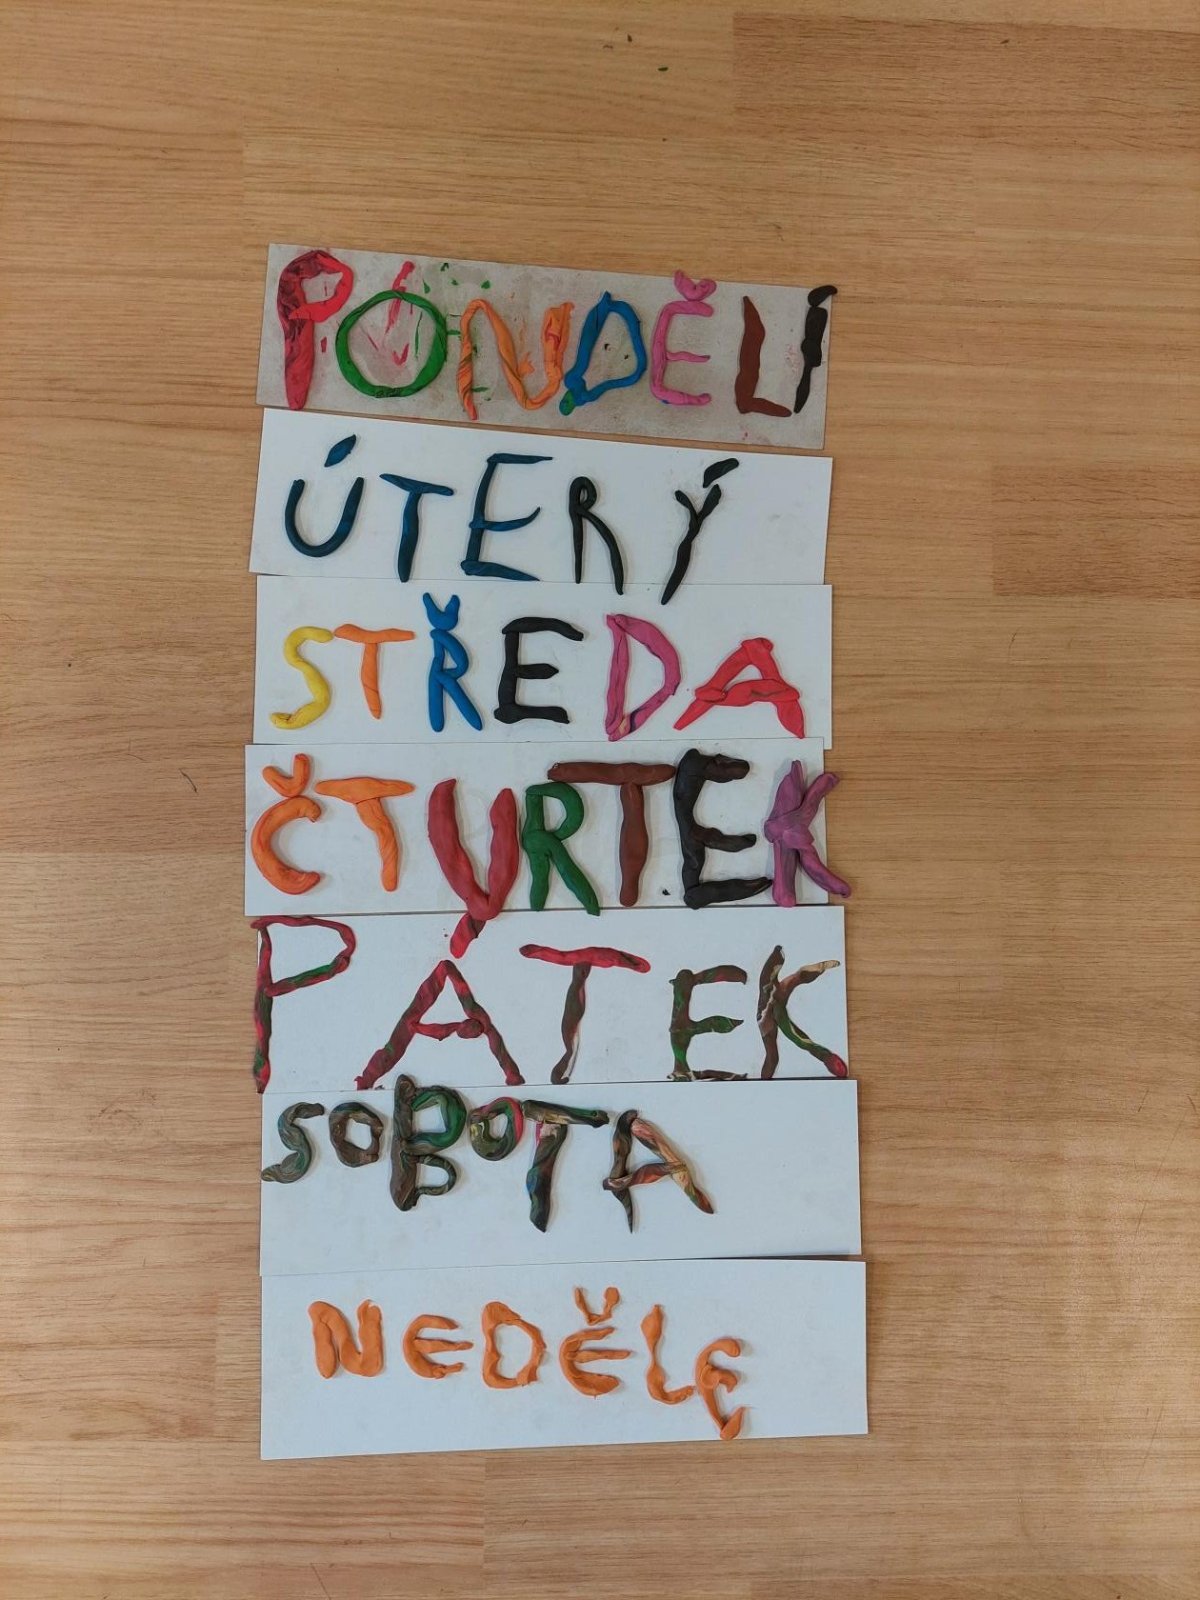 PONDĚLÍ
ÚTERÝ
STŘEDA
ČTVRTEK
PÁTEK
SOBOTA
NEDĚLE